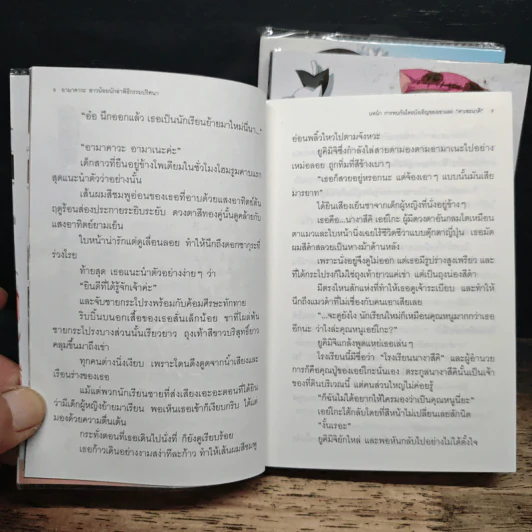 8 อามาคาวะ สาวน้อยนักล่าพิธีกรรมปริศนา
"อ๋อ นึกออกแล้ว เธอเป็นนักเรียนย้ายมาใหม่นี่นา..."
"อามาคาวะ อามาเนะค่ะ"
เด็กสาวที่ยืนอยู่ข้างโพเดียมในชั่วโมงโฮมรูมคาบแรก
สุดแนะนำตัวว่าอย่างนั้น
เส้นผมสีชมพูอ่อนของเธอที่อาบด้วยแสงอาทิตย์ต้น
ฤดูร้อนส่องประกายระยิบระยับ ดวงตาสีทองคู่นั้นดูคล้ายกับ
แสงอาทิตย์ยามเย็น
ใบหน้าน่ารักแต่ดูเลื่อนลอย ทำให้นึกถึงดอกซากุระที่
ร่วงโรย
ท้ายสุด เธอแนะนำตัวอย่างง่ายๆ ว่า
"ยินดีที่ได้รู้จักเจ้าค่ะ"
และจับชายกระโปรงพร้อมกับค้อมศีรษะทักทาย
ริบบิ้นบนอกเสื้อของเธอสั่นเล็กน้อย ขาที่โผล่พ้น
ชายกระโปรงบางส่วนนั้นเรียวยาว ถุงเท้าสีขาวบริสุทธิ์ยาว
คลุมขึ้นมาถึงเข่า
ทุกคนต่างนิ่งเงียบ เพราะโดนดึงดูดจากน้ำเสียงและ
เรือนร่างของเธอ
แม้แต่พวกนักเรียนชายที่ส่งเสียงเอะอะตอนที่ได้ยิน
ว่ามีเด็กผู้หญิงย้ายมาเรียน พอเห็นเธอเข้าก็เงียบกริบ ได้แต่
มองด้วยความตื่นเต้น
กระทั่งตอนที่เธอเดินไปนั่งที่ ก็ยังดูเรียบร้อย
เธอก้าวเดินอย่างงามสง่าทีละก้าว ทำให้เส้นผมสีชมพู
บทนำ 9
อ่อนพลิ้วไหวไปตามจังหวะ
ยูคิมิจิซึ่งกำลังไล่สายตามองตามอามาเนะไปอย่าง
เหม่อลอย ถูกทิ่มที่สีข้างเบาๆ
"เธอก็สวยอยู่หรอกนะ แต่จ้องเอาๆ แบบนั้นมันเสีย
มารยาท"
ได้ยินเสียงเย็นชาจากเด็กผู้หญิงที่นั่งอยู่ข้างๆ
เธอคือ...นางาสึคิ เอยิโกะ ผู้มีดวงตาอันกลมโตเหมือน
ตาแมวและใบหน้านิ่งเฉยไร้ชีวิตชีวาแบบตุ๊กตาญี่ปุ่น เธอมัด
ผมสีดำสลวยเป็นหางม้าด้านหลัง
เพราะนั่งอยู่จึงดูไม่ออก แต่เธอมีรูปร่างสูงเพรียว และ
ที่ใต้กระโปรงก็ไม่ใช่ถุงเท้ายาวแค่เข่า แต่เป็นถุงน่องสีดำ
มีตรงไหนสักแห่งที่ทำให้เธอดูเจ้าระเบียบ และทำให้
นึกถึงแมวดำที่ไม่เชื่องกับคนเอาเสียเลย
"...จะดูยังไง นักเรียนใหม่ก็เหมือนคุณหนูมากกว่าเธอ
อีกนะ ว่าไงล่ะคุณหนูเอยิโกะ?"
ยูคิมิจิแกล้งพูดแหย่เธอเล่น
โรงเรียนนี้มีชื่อว่า "โรงเรียนนางาสึคิ" และผู้อำนวย
การก็คือคุณปู่ของเอยิโกะนั่นเอง ตระกูลนางาสึคินั้นเป็นเจ้า
ของที่ดินบริเวณนี้ แต่คนส่วนใหญ่ไม่ค่อยรู้
"ก็ฉันไม่ได้อยากให้ใครมองว่าเป็นคุณหนูนี่คะ"
เอยิโกะโต้กลับโดยที่สีหน้าไม่เปลี่ยนเลยสักนิด
"งั้นเรอะ"
ยูคิมิจิยักไหล่ และพอหันกลับไปอย่างไม่ได้ตั้งใจ